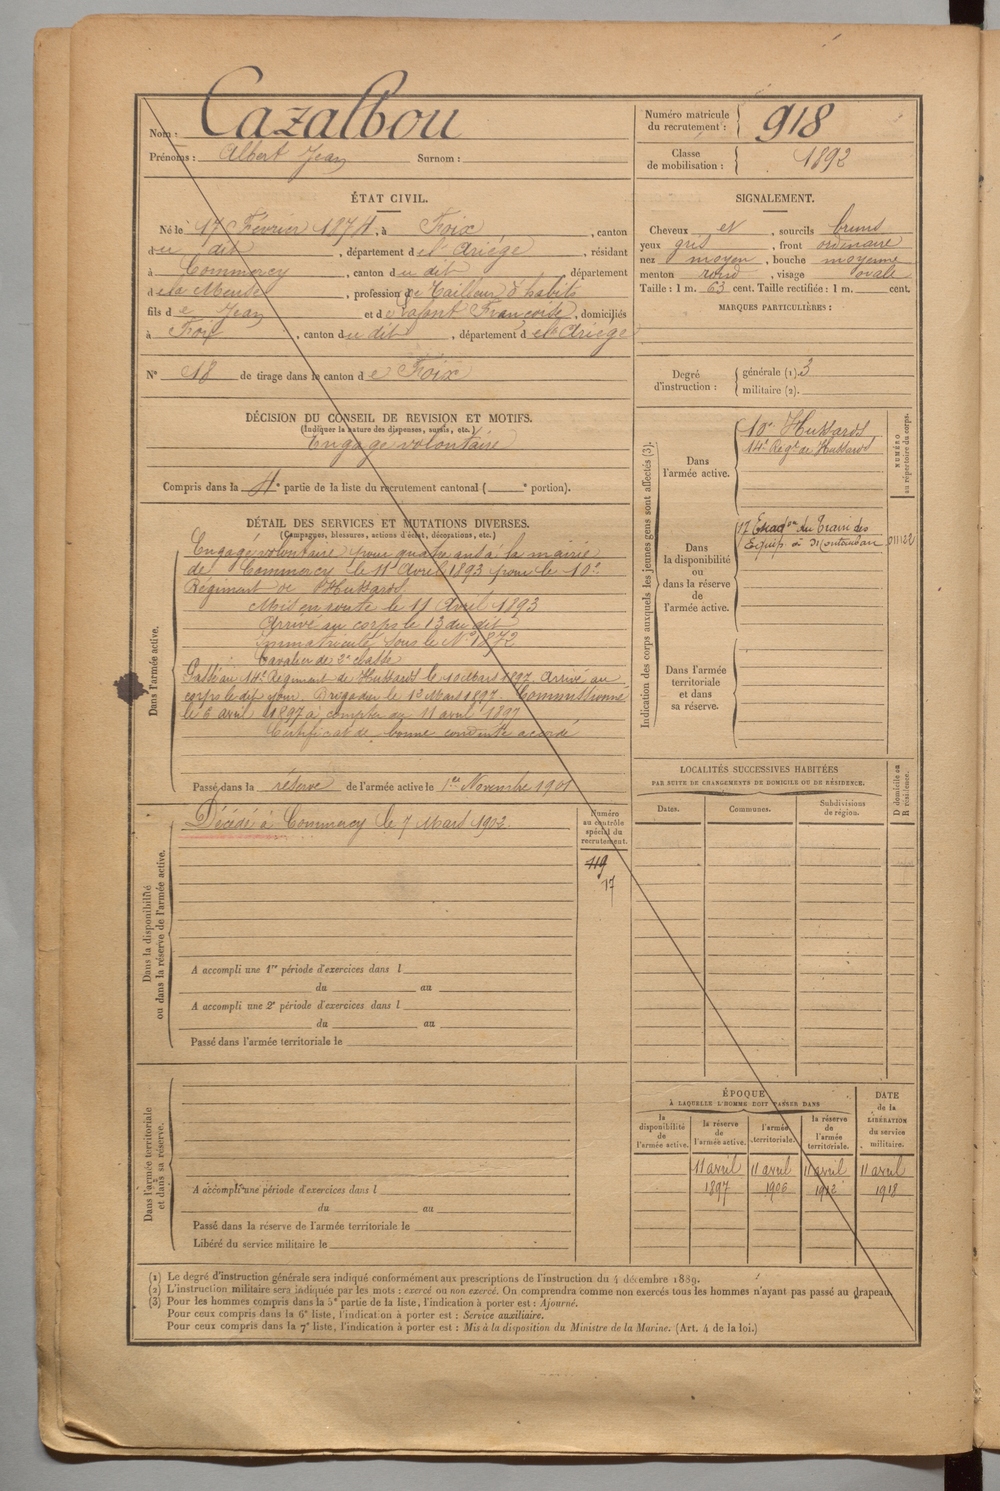 Nom : Cazalbou
Prénoms : Albert Jean Surnom :
Numéro matricule du recrutement : 918
Classe de mobilisation : 1892
ÉTAT CIVIL.
Né le 17 Février 1874, à Foix, canton
du dit, département de l'Ariège, résidant
à Commercy, canton du dit, département
de la Meuse, profession de Tailleur d'habits
fils de Jean et de Françoise, domiciliés
à Foix, canton du dit, département de l'Ariège
N° 18 de tirage dans le canton de Foix
SIGNALEMENT.
Cheveux et, sourcils bruns
yeux gris, front ordinaire
nez moyen, bouche moyenne
menton rond, visage ovale
Taille : 1 m. 63 cent. Taille rectifiée : 1 m. cent.
MARQUES PARTICULIÈRES :
Degré d'instruction : générale (1). 3
militaire (2).
DÉCISION DU CONSEIL DE REVISION ET MOTIFS.
(Indiquer la nature des dispenses, sursis, etc.)
Engagé volontaire
Compris dans la 4e partie de la liste du recrutement cantonal ( e portion).
DÉTAIL DES SERVICES ET MUTATIONS DIVERSES.
(Campagnes, blessures, actions d'éclat, décorations, etc.)
Dans l'armée active.
Engagé volontaire pour quatre ans à la mairie
de Commercy le 11 Avril 1893 pour le 10e
Régiment de Hussards
Mis en route le 11 Avril 1893
Arrivé au corps le 13 du dit
Immatriculé sous le N° 1872
Cavalier de 2e classe
Passé au 14e Régiment de Hussards le 10 Mars 1897. Arrivé au
corps le dit jour. Brigadier le 13 Mars 1897. Commissionné
le 6 avril 1897 à compter du 11 avril 1897
Certificat de bonne conduite accordé
Passé dans la réserve de l'armée active le 1er Novembre 1901
Dans la disponibilité
ou dans la réserve de l'armée active.
Décédé à Commercy le 7 Mars 1902.
Numéro
au contrôle
spécial du
recrutement.
119
17
A accompli une 1re période d'exercices dans l
du au
A accompli une 2e période d'exercices dans l
du au
Passé dans l'armée territoriale le
Dans l'armée territoriale
et dans sa réserve.
A accompli une période d'exercices dans l
du au
Passé dans la réserve de l'armée territoriale le
Libéré du service militaire le
Indication des corps auxquels les jeunes gens sont affectés (3).
NUMÉRO
au répertoire du corps.
Dans
l'armée active.
10e Hussards
14e Régt de Hussards
Dans
la disponibilité
ou
dans la réserve
de
l'armée active.
17 Escadon du Train des
Equip. à Montauban
011122
Dans l'armée
territoriale
et dans
sa réserve.
LOCALITÉS SUCCESSIVES HABITÉES
PAR SUITE DE CHANGEMENTS DE DOMICILE OU DE RÉSIDENCE.
Dates.
Communes.
Subdivisions
de région.
D domicile ou
R résidence.
ÉPOQUE
À LAQUELLE L'HOMME DOIT PASSER DANS
DATE
de la
LIBÉRATION
du service
militaire.
la
disponibilité
de
l'armée active.
la réserve
de
l'armée active.
l'armée
territoriale.
la réserve
de
l'armée
territoriale.
11 avril 11 avril 11 avril 11 avril
1897 1906 1912 1918
(1) Le degré d'instruction générale sera indiqué conformément aux prescriptions de l'instruction du 4 décembre 1889.
(2) L'instruction militaire sera indiquée par les mots : exercé ou non exercé. On comprendra comme non exercés tous les hommes n'ayant pas passé au drapeau.
(3) Pour les hommes compris dans la 5e partie de la liste, l'indication à porter est : Ajourné.
Pour ceux compris dans la 6e liste, l'indication à porter est : Service auxiliaire.
Pour ceux compris dans la 7e liste, l'indication à porter est : Mis à la disposition du Ministre de la Marine. (Art. 4 de la loi.)